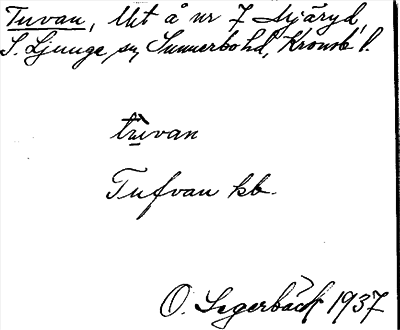 Tuvan, Utt å nr 7 Stjäryd,
S. Ljunga sn, Sunnerbo hd, Kronob l.
tùvan
Tufvan kb.
O. Segerbäck 1937